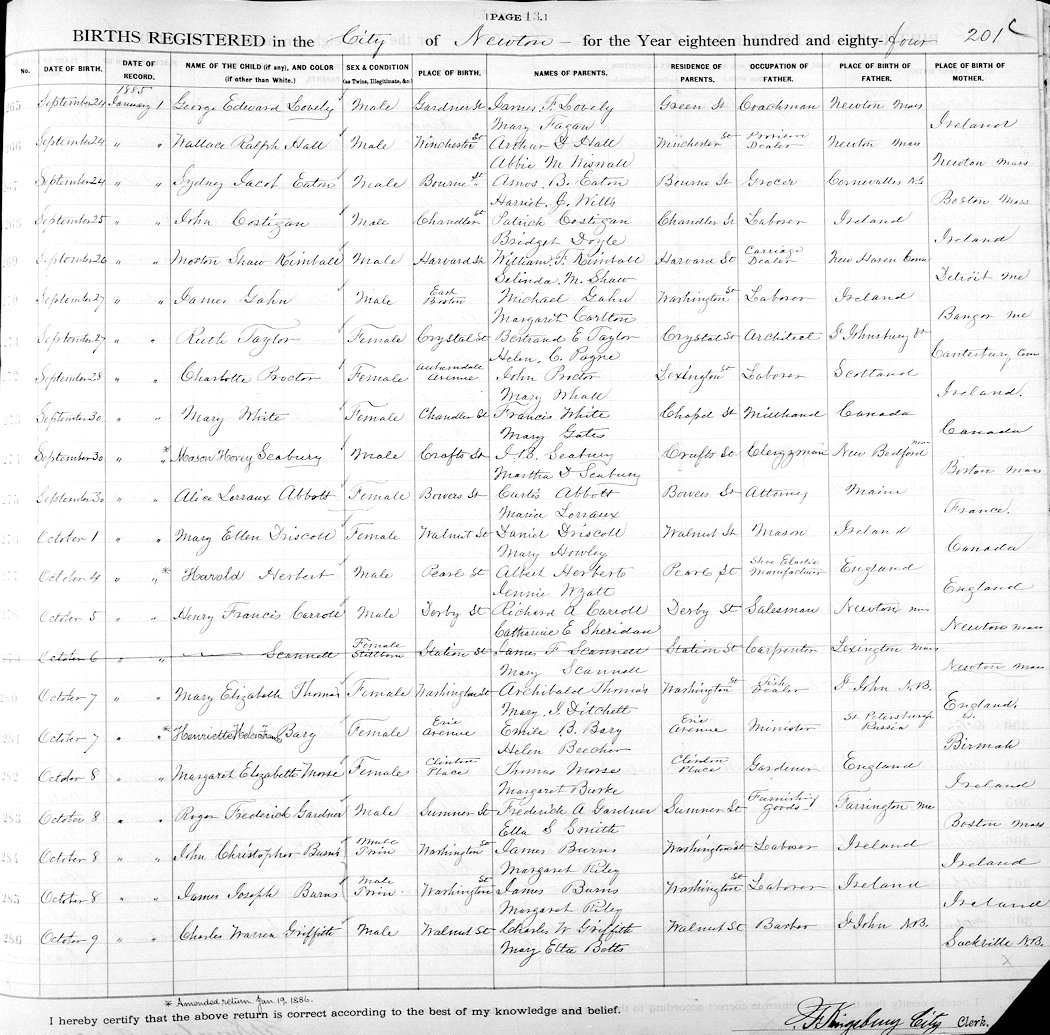 [PAGE 13.]
BIRTHS REGISTERED in the City of Newton for the Year eighteen hundred and eighty-four 201
No. DATE OF BIRTH. DATE OF RECORD. NAME OF THE CHILD (if any), AND COLOR (if other than White.) SEX & CONDITION (as Twins, Illegitimate, &c.) PLACE OF BIRTH. NAMES OF PARENTS. RESIDENCE OF PARENTS. OCCUPATION OF FATHER. PLACE OF BIRTH OF FATHER. PLACE OF BIRTH OF MOTHER.
1885
265 September 24 January 1 George Edward Lovely Male Gardner St James F. Lovely Green St Coachman Newton Mass
Mary Fagan Ireland
266 September 24 " " Wallace Ralph Hall Male Winchester St Arthur D Hall Winchester St Provision Dealer Newton Mass
Abbie M Wiswall Newton Mass
267 September 24 " " Sydney Jacob Eaton Male Bourne St Amos. B. Eaton Bourne St Grocer Cornwallis N.S
Harriet. G. Wills Boston Mass
268 September 25 " " John Costigan Male Chandler St Patrick Costigan Chandler St Laborer Ireland
Bridget Doyle Ireland
269 September 26 " " Morton Shaw Kimball Male Harvard St William. F. Kimball Harvard St Carriage Dealer New Haven Conn
Selinda. M. Shaw Detroit Me
270 September 27 " " James Gahn Male East Boston Michael Gahn Washington St Laborer Ireland
Margaret Carlton Bangor Me
271 September 27 " " Ruth Taylor Female Crystal St Bertrand E Taylor Crystal St Architect St Johnsbury Vt
Helen. C. Payne Canterbury Conn
272 September 28 " " Charlotte Proctor Female Auburndale Avenue John Proctor Lexington St Laborer Scotland
Mary Whall Ireland.
273 September 30 " " Mary White Female Chandler St Francis White Chapel St Millhand Canada
Mary Gates Canada
274 September 30 " " * Mason Hovey Seabury Male Crafts St J. B. Seabury Crafts St Clergyman New Bedford Mass
Martha D Seabury Boston Mass
275 September 30 " " Alice Lorraux Abbott Female Bowers St Curtis Abbott Bowers St Attorney Maine
Marie Lorraux France.
276 October 1 " " Mary Ellen Driscoll Female Walnut St Daniel Driscoll Walnut St Mason Ireland
Mary Howley Canada
277 October 4 " " * Harold Herbert Male Pearl St Albert Herbert Pearl St Shoe Elastic Manufacturer England
Jennie Wyatt England
278 October 5 " " Henry Francis Carroll Male Derby St Richard A Carroll Derby St Salesman Newton Mass
Catharine E Sheridan Newton Mass
279 October 6 " " Scannell Female Stillborn Station St James F Scannell Station St Carpenter Lexington Mass
Mary Scannell Newton Mass
280 October 7 " " Mary Elizabeth Thomas Female Washington St Archibald Thomas Washington St Fish Dealer St John N.B.
Mary. J. Ditchett England.
281 October 7 " " * Henriette Helen Bary Female Erie Avenue Emile B. Bary Erie Avenue Minister St Petersburg Russia
Helen Beecher Birmah
282 October 8 " " Margaret Elizabeth Morse Female Clinton Place Thomas Morse Clinton Place Gardener England
Margaret Burke Ireland
283 October 8 " " Roger Frederick Gardner Male Sumner St Frederick A Gardner Sumner St Furnishing goods Farrington Me
Etta S Smith Boston Mass
284 October 8 " " John Christopher Burns Male Twin Washington St James Burns Washington St Laborer Ireland
Margaret Riley Ireland
285 October 8 " " James Joseph Burns Male Twin Washington St James Burns Washington St Laborer Ireland
Margaret Riley Ireland
286 October 9 " " Charles Warren Griffith Male Walnut St Charles W Griffith Walnut St Barber St John N.B.
Mary Etta Betts Sackville N.B.
* Amended return. Jan 19. 1886.
I hereby certify that the above return is correct according to the best of my knowledge and belief.
Kingsbury City Clerk.